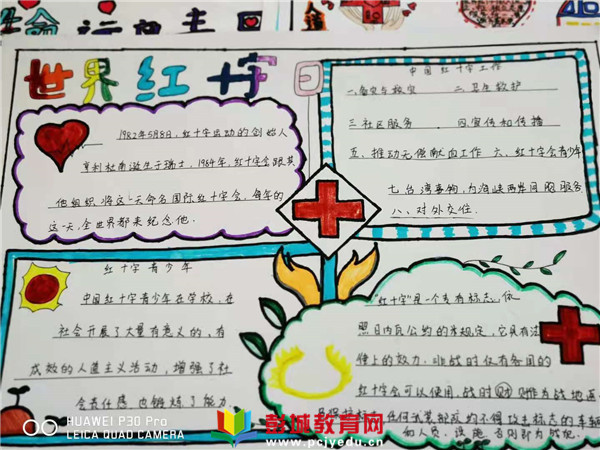 世界红十字日
1982年5月8日,红十字运动的创始人
亨利杜南诞生于瑞士,1984年,红十字会跟其
他组织将这一天命名国际红十字会,每年的
这一天,全世界都来纪念他.
中国红十字工作
一.备灾与救灾 二.卫生救护
三.社区服务 四.宣传和传播
五、推动无偿献血工作 六、红十字会青少年
七.台湾事物,为海峡两岸同胞服务
八、对外交往.
红十字青少年
中国红十字青少年在学校,在
社会开展了大量有意义的,有
成效的人道主义活动,增强了社
会责任感,也锻炼了能力
"红十字"是一个专有标志,依
照日内瓦公约的
规定,它具有法
律上的效力.非战时仅有各国的
红十字会可以使用,战时
则作为战地
任何武装部队均不得攻击标志的车辆
和人员、设施
否则即为战犯.
HUAWEI P30 Pro
LEICA QUAD CAMERA
彭城教育网
www.pcjyedu.cn